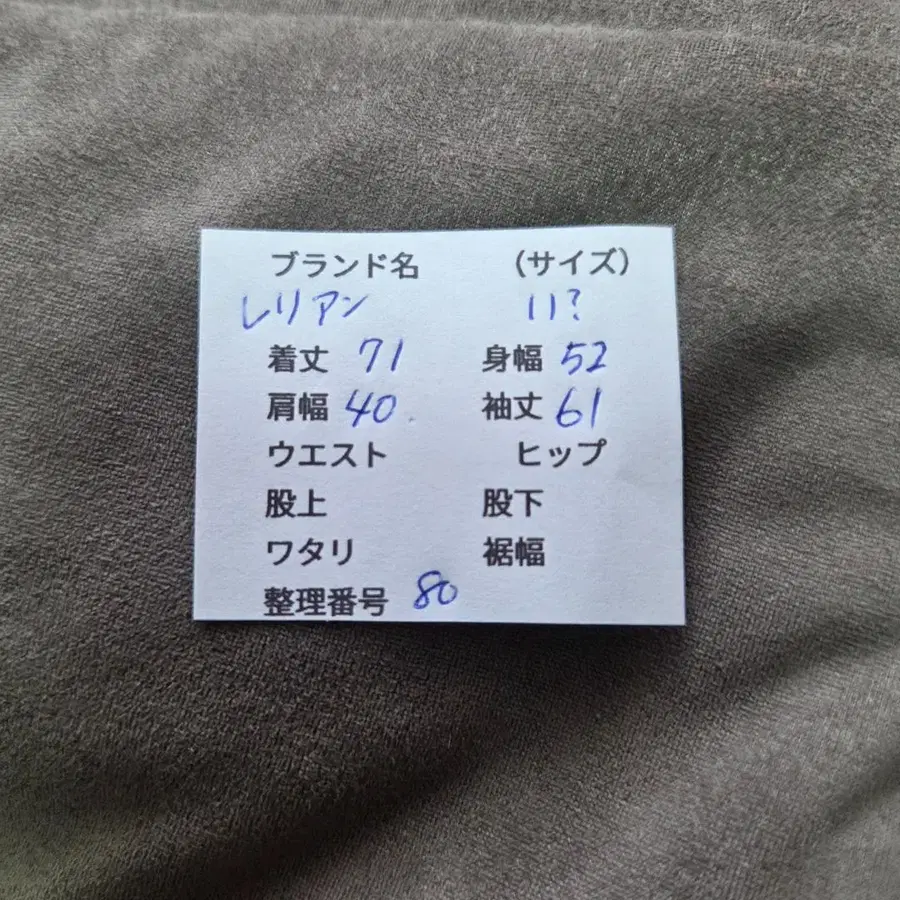 ブランド名 （サイズ）
レリアン 11?
着丈 71 身幅 52
肩幅 40 袖丈 61
ウエスト ヒップ
股上 股下
ワタリ 裾幅
整理番号 80